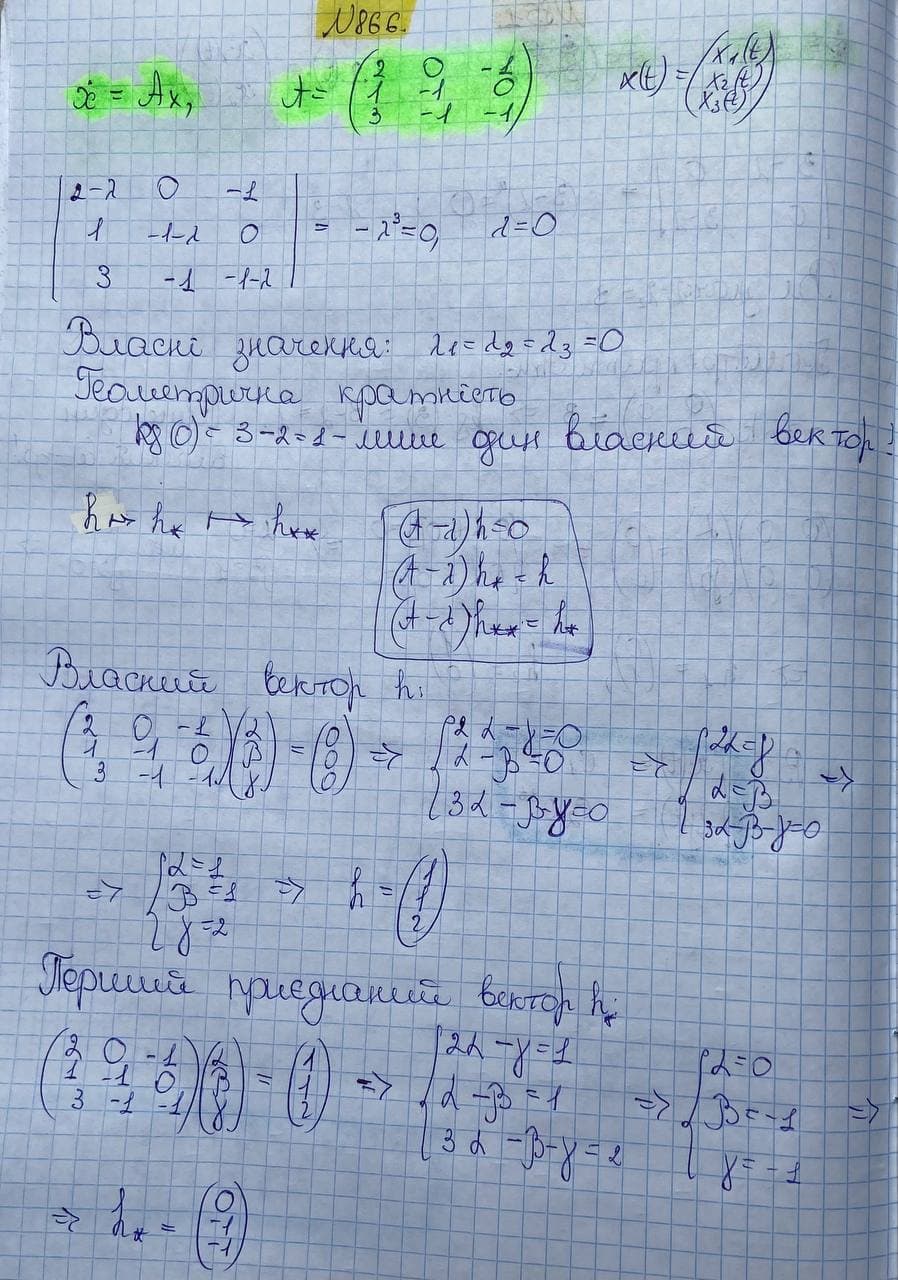 N866.
ẋ = Ax, A = (2 0 -1; 1 -1 0; 3 -1 -1) x(t) = (x₁(t); x₂(t); x₃(t))
|2-λ 0 -1; 1 -1-λ 0; 3 -1 -1-λ| = -λ³=0, λ=0
Власні значення: λ₁=λ₂=λ₃=0
Геометрична кратність
kg(0) = 3-2=1 - лише один власний вектор!
h ↦ h* ↦ h**
(A-λ)h=0
(A-λ)h* = h
(A-λ)h** = h*
Власний вектор h:
(2 0 -1; 1 -1 0; 3 -1 -1)(α; β; γ) = (0; 0; 0) => {2α-γ=0; α-β=0; 3α-β-γ=0 => {2α=γ; α=β; 3α-β-γ=0 =>
=> {α=1; β=1; γ=2 => h = (1; 1; 2)
Перший приєднаний вектор h*:
(2 0 -1; 1 -1 0; 3 -1 -1)(α; β; γ) = (1; 1; 2) => {2α-γ=1; α-β=1; 3α-β-γ=2 => {α=0; β=-1; γ=-1 =>
=> h* = (0; -1; -1)